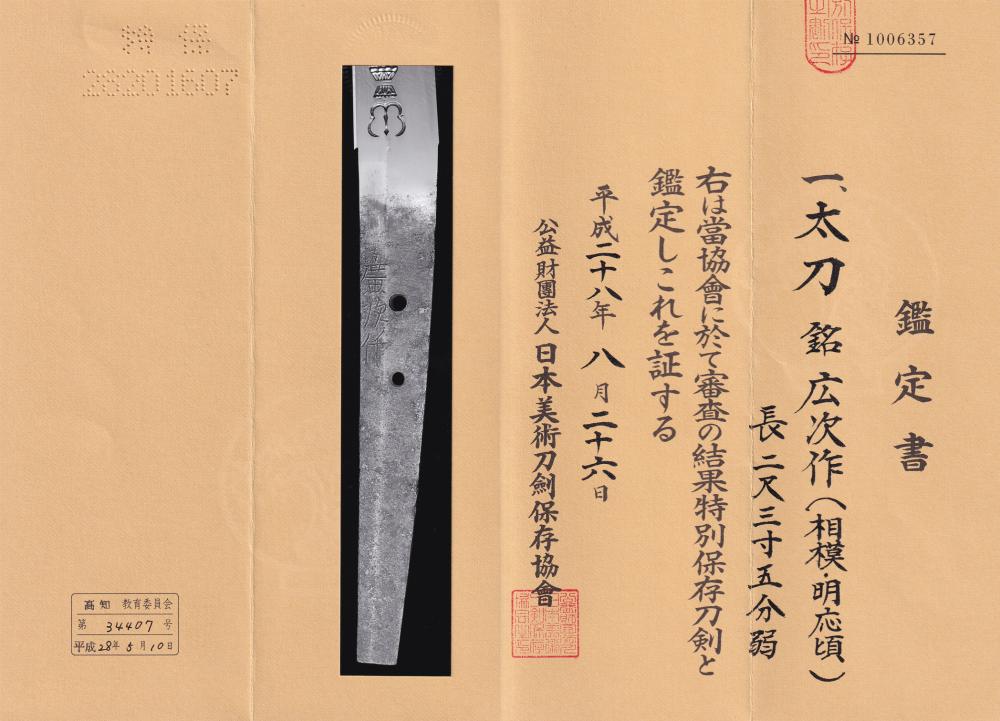 № 1006357
鑑定書
一、太刀 銘 広次作(相模・明応頃)
長二尺三寸五分弱
右は當協會に於て審査の結果特別保存刀剣と
鑑定しこれを証する
平成二十八年 八月二十六日
公益財團法人 日本美術刀劍保存協會
28201607
高知 教育委員会
第 34407 号
平成28年5月10日